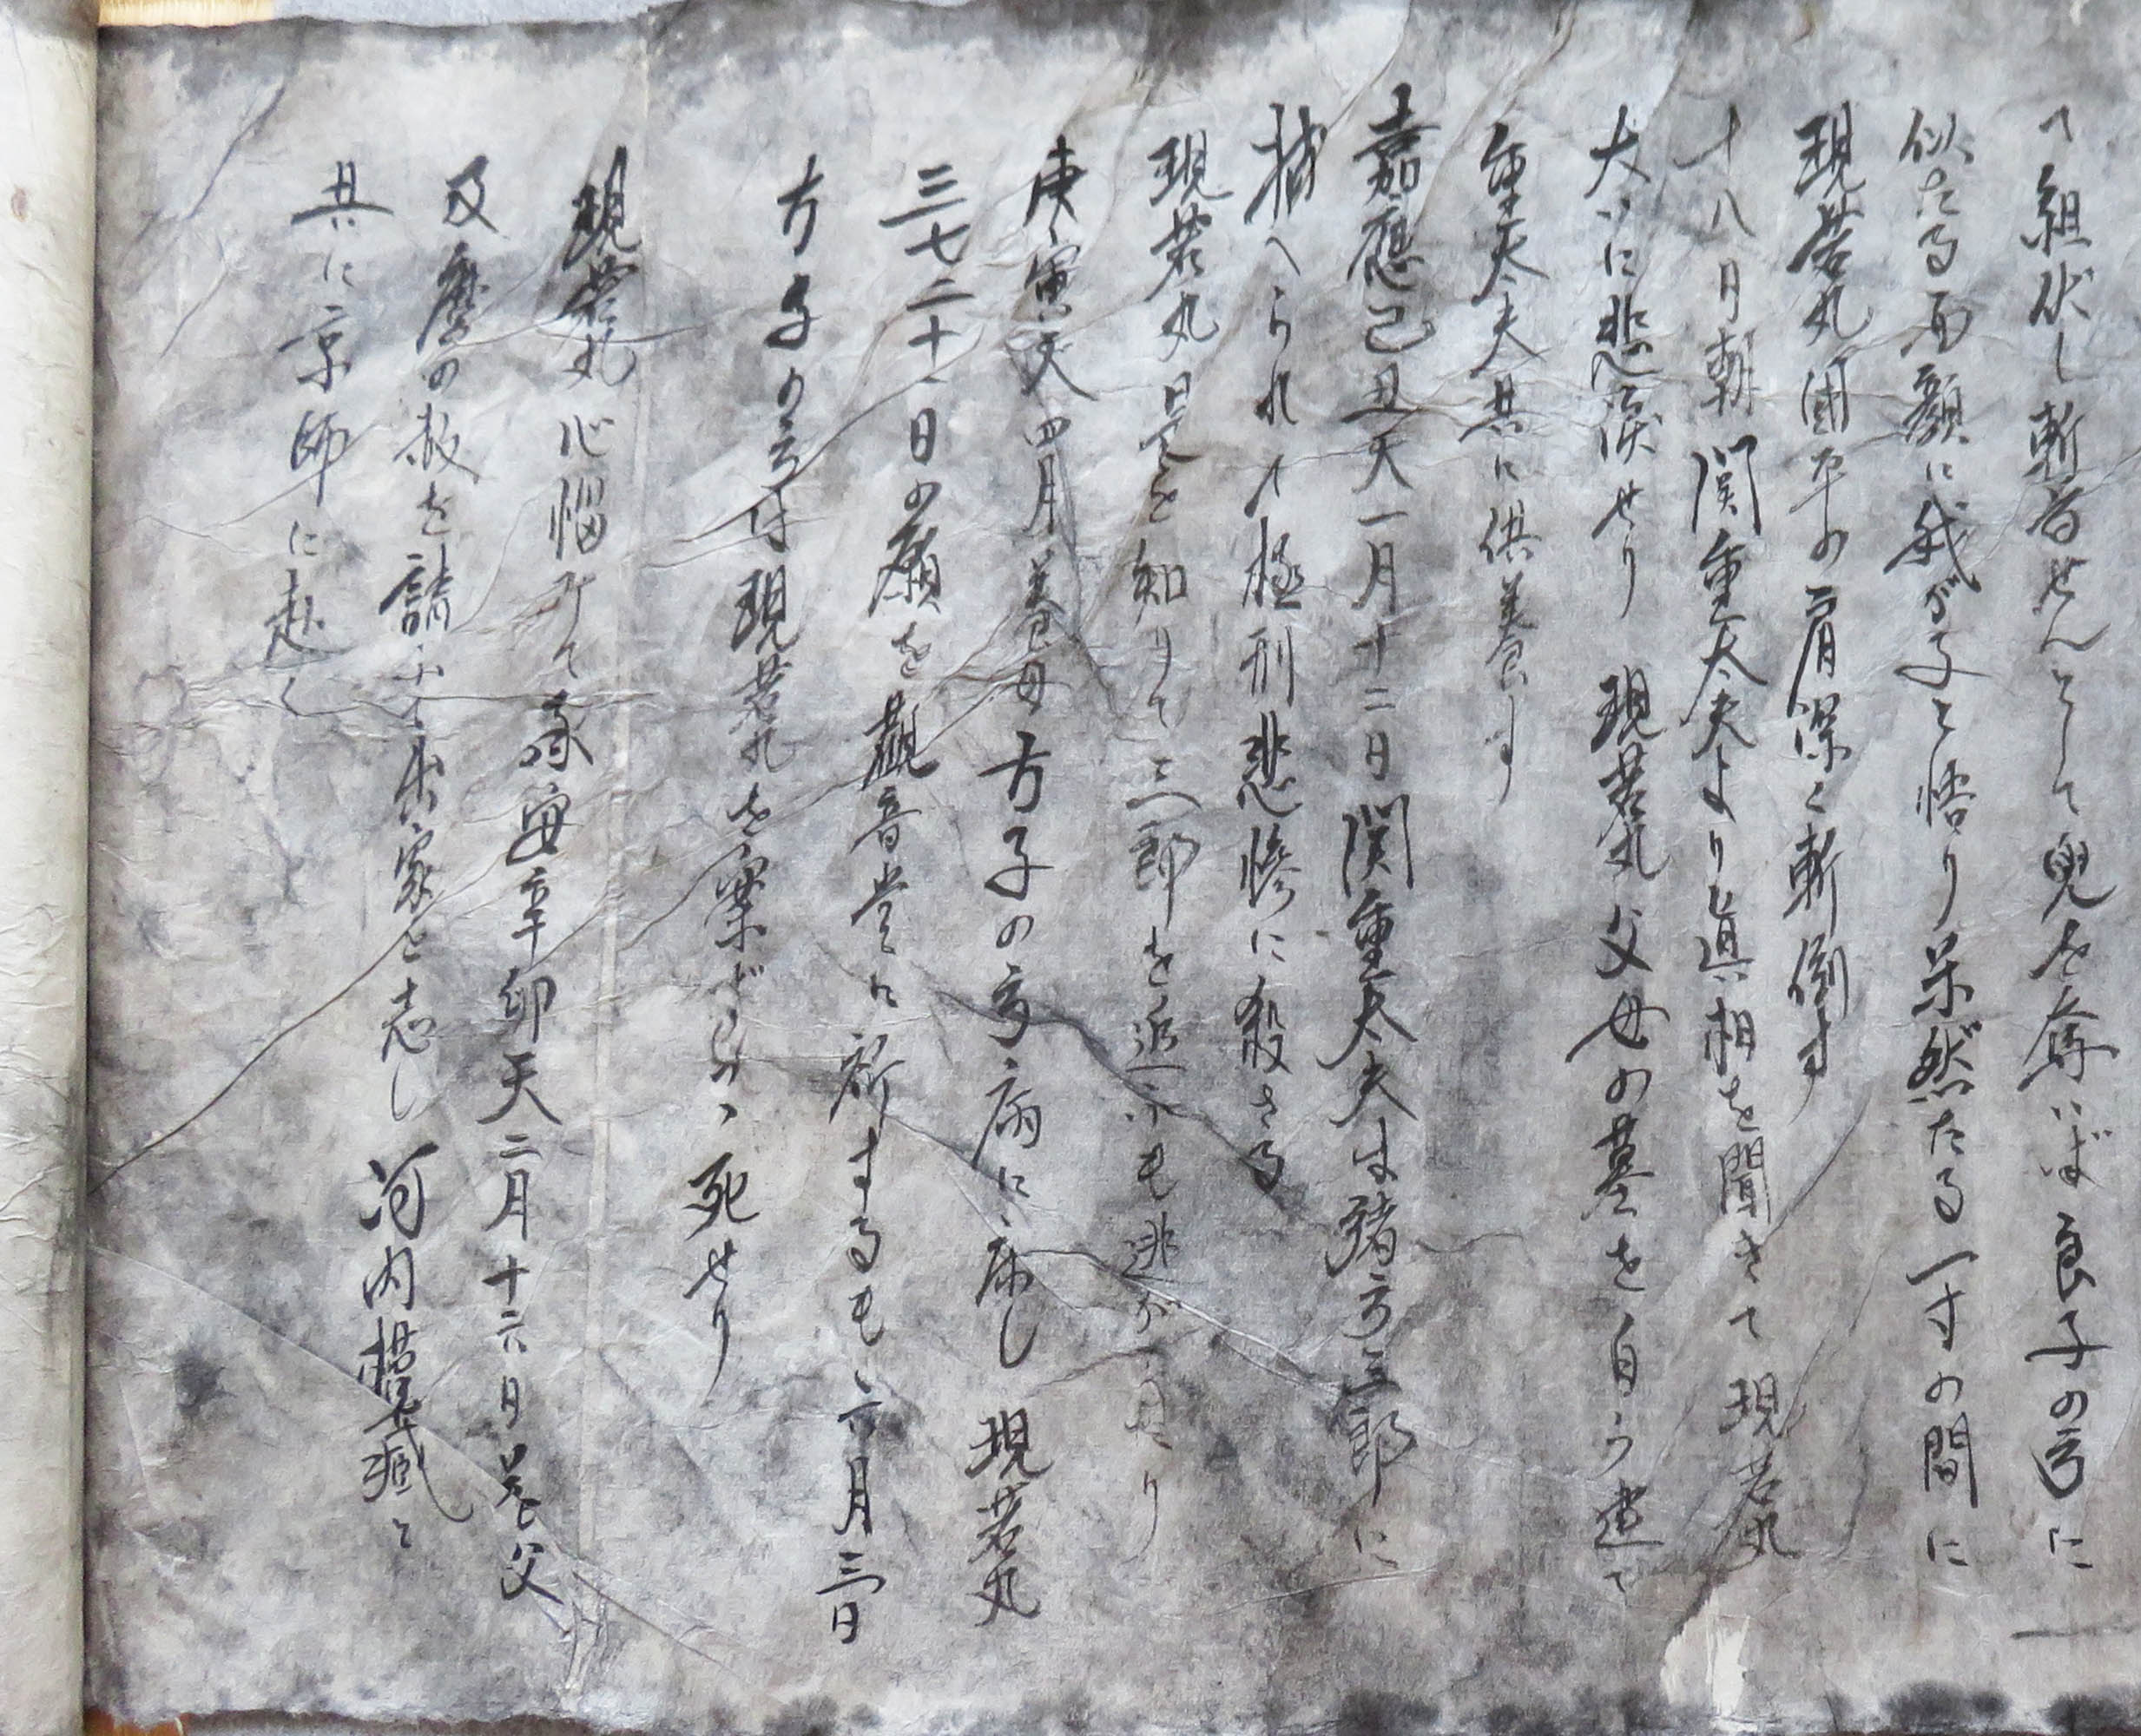 て組伏し斬首せんとして兜を奪いば良子の号に
似たる面顔に我が子と悟り呆然たる一寸の間に
現若丸国平の肩深く斬倒す
十八月朝関重太夫より真相を聞きて現若丸
大いに悲涙せり 現若丸父母の墓を自ら建て
重太夫共に供養す
嘉應己丑天一月十二日関重太夫は諸方三郎に
捕へられ極刑悲惨に殺さる
現若丸是を知りて三郎を追ふも逃が
庚寅天四月養母方子の方病に床し 現若丸
三七二十一日の願を観音堂に祈するも六月三日
方子の方は現若丸を案じつゝ死せり
現若丸心悩みて承安辛卯天二月十六日養父
及磨の赦を請ふ出家と志し河内権藏と
共に京師に赴く